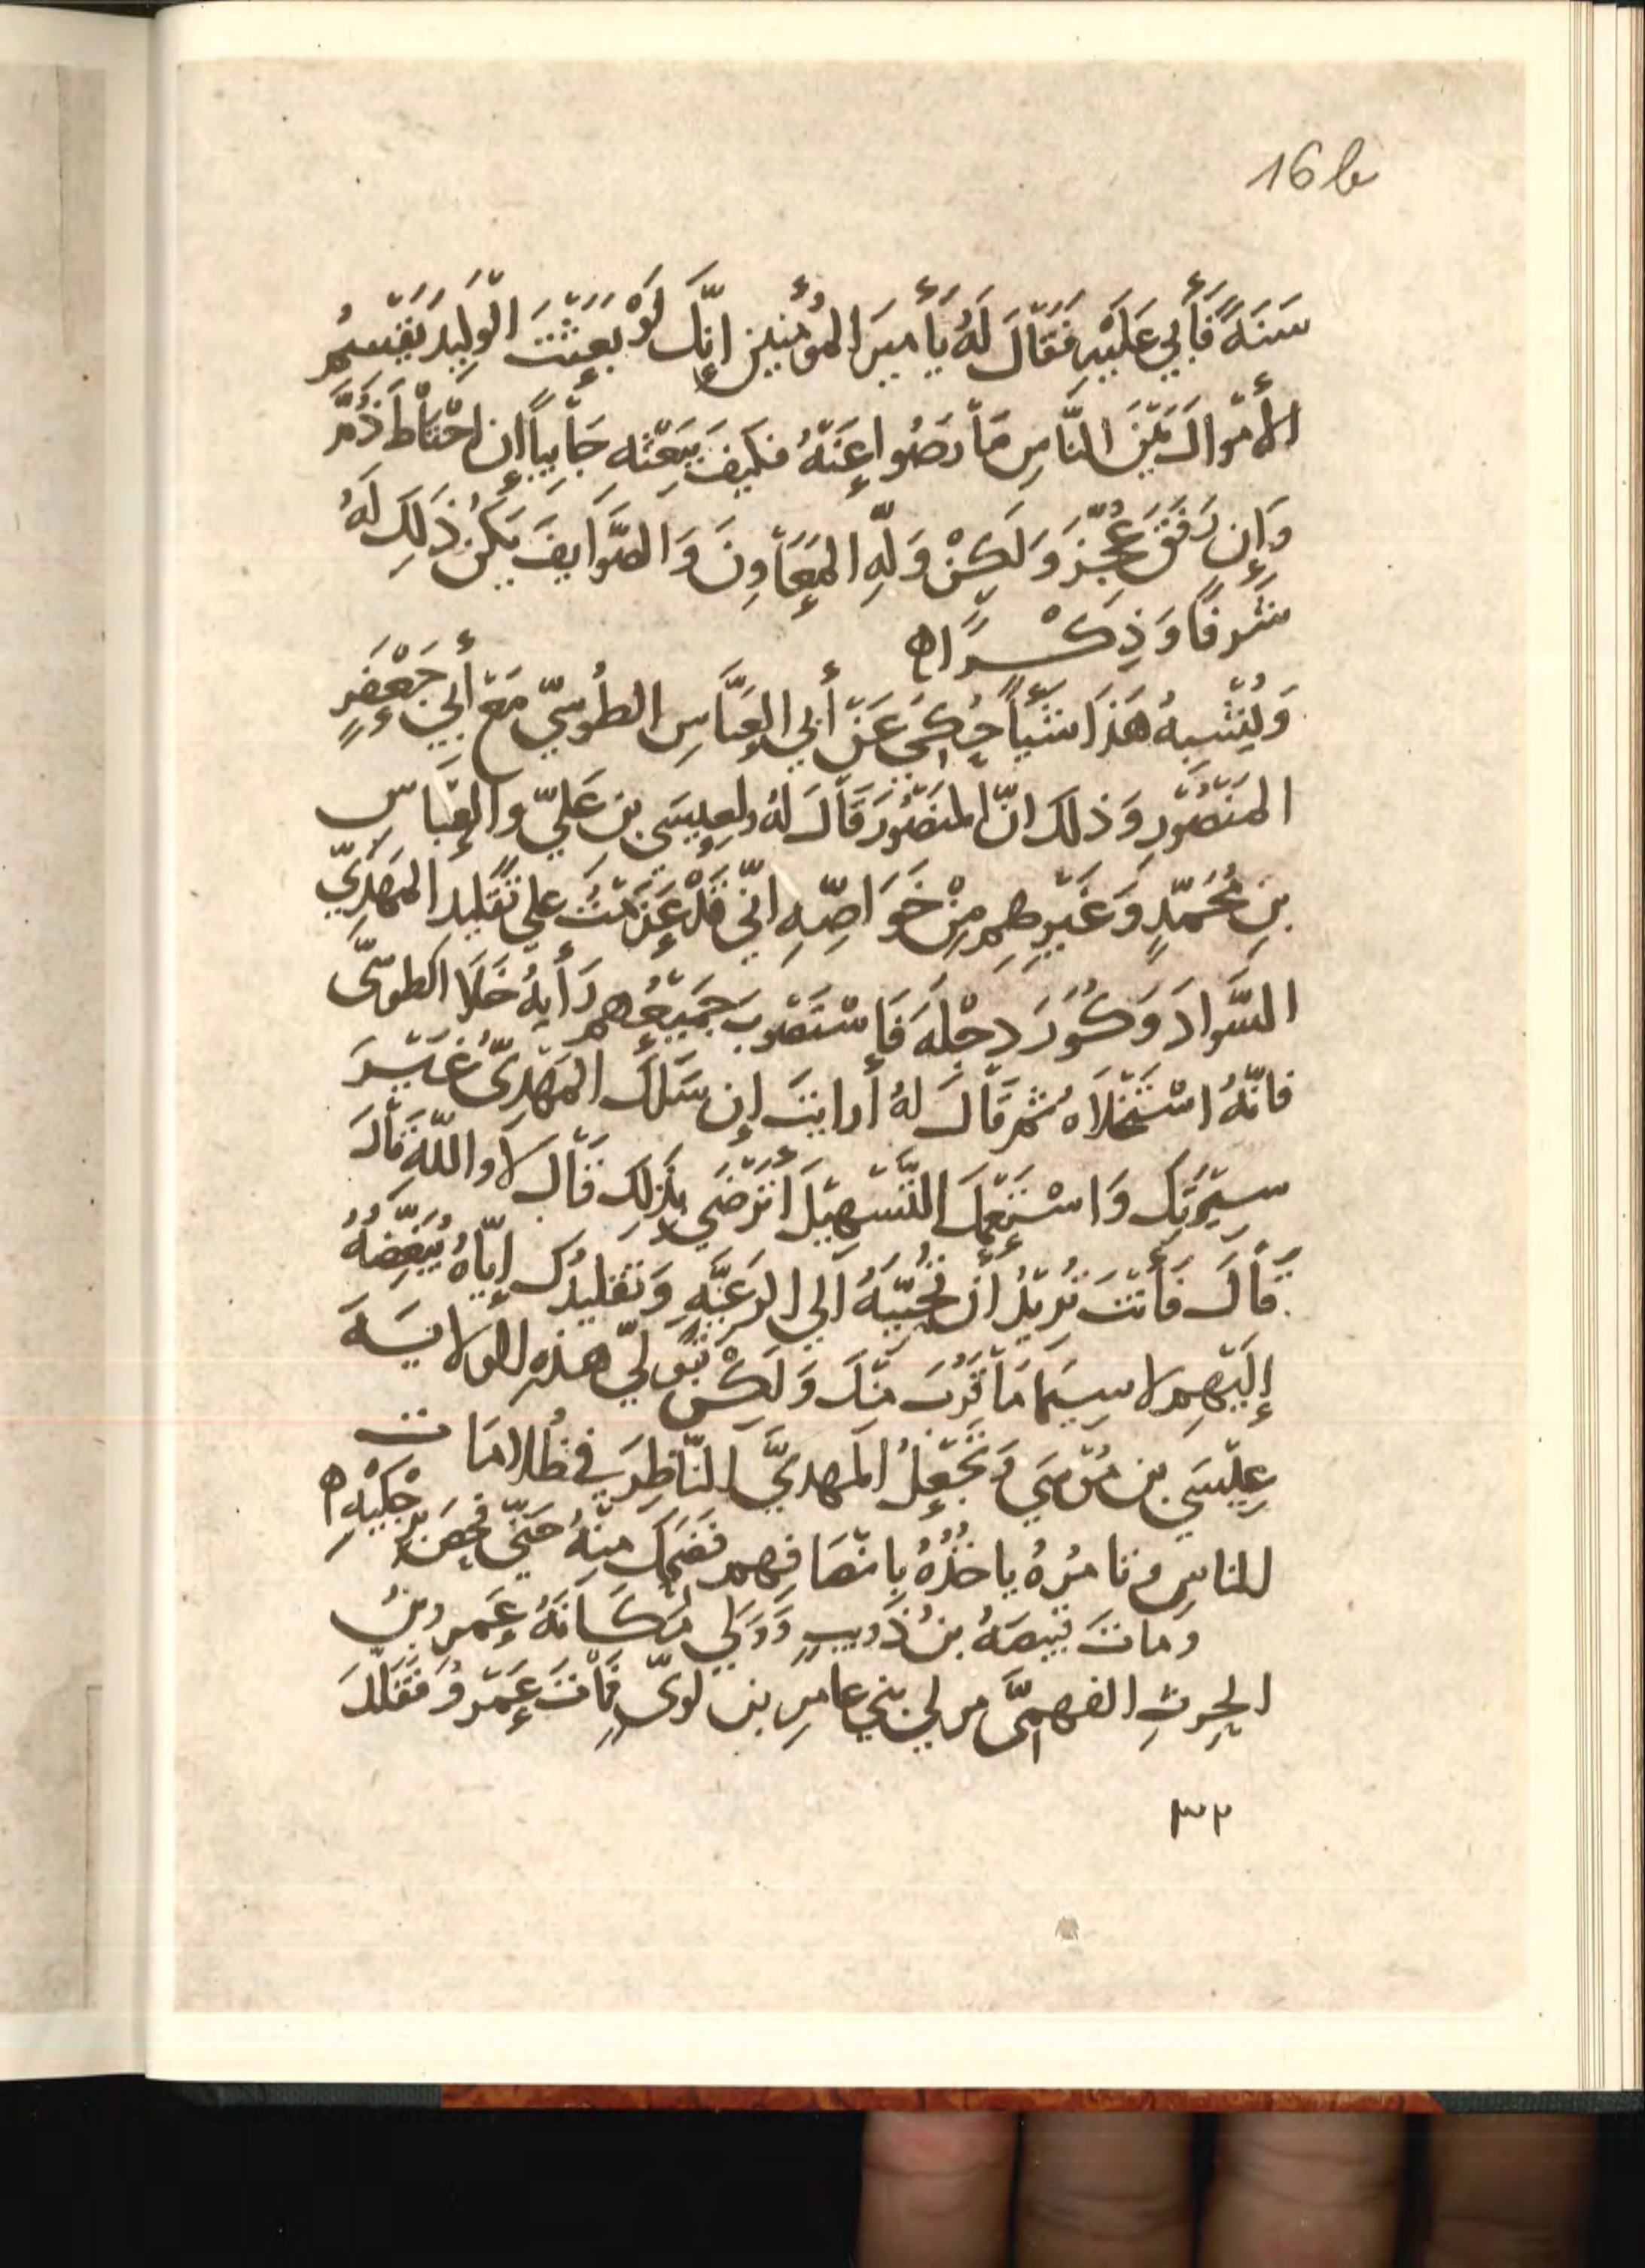 16b
سَنَةً فَأَبي عَلَيْهِ فَقَالَ لَهُ يَأَميرَ المؤُمِنين إنِّكَ لَوْ بَعَثْتَ الْوَلِيدَ يَقْسِمُ
الأمْوالَ بَيْنَ النَّاسِ مَا رَضُوا عَنْهُ فكَيفَ بَبَعْثِهِ جَابِياً إن احْتَاطَ ذُمَّ
وَإن رَفَقَ عُجِّزَ وَلَكِنْ وَلِّهِ المَعَاوِنَ وَالصَّوَايِفَ يَكُنْ ذَلِكَ لَهُ
شَرفًا وَذِكْرًا ه
وَيُشْبِهُ هَذَا شَيْأً حُكِيَ عَنْ أبي العَبَّاسِ الطُوسِيّ مَعَ أبِي جَعْفَرٍ
المَنْصُورِ وَذلكَ انَّ المنصُورَ قَالَ لهُ ولعِيسَى بن عَليّ والعبّاسِ
بنِ مُحَمّدٍ وَغَيْرِهِم مِنْ خَوَاصِّهِ انّي قَدْ عَزَمْتُ علي تَقليد المَهدِيّ
السَّوادَ وَكُوَرَ دِجْلَةَ فَاسْتَصْوبَ جَمِيعُهم رَأيهُ خَلَا الطوسّى
فانّهُ اسْتَخْلَاهُ ثم قَالَ لهُ أرايتَ إن سَلَكَ المَهْدِيّ غَيْرَ
سِيرَتِكَ وَاسْتَعْمَلَ التَّسْهِيْلَ أتَرْضَي بذَلِكَ قَالَ لا واللّهِ قَالَ
قَالَ فَأنْتَ تُرِيْدُ أن تُحَبِّبَهُ الي الرعَيَّهِ وَتقليدُكَ إيّاهُ يُبَغِّضهُ
إلَيْهِم لا سِيَمَا مَا قَرُبَ مِنْكَ وَلَكِنْ تُوَلِيّ هذهِ الولايَةَ
عِيْسَي بن مُوْسَي وَتَجْعَلُ المهديَّ النّاظِرَ في ظُلامَات
للناسِ وتامُرهُ ياخُذُهُ بانْصَافِهِم فَضَحِكَ مِنْهُ حَتّي فحَصَ بِرِجْلَيْهِ ه
وماتَ قبيصَهُ بنُ ذُويبٍ وَوَلي مَكَانَهُ عَمرو بنُ
الحرثِ الفهمِىّ مولي بَني عامرِ بن لوىّ فَمَاتَ عَمْرو فَقَلّدَ
٣٢